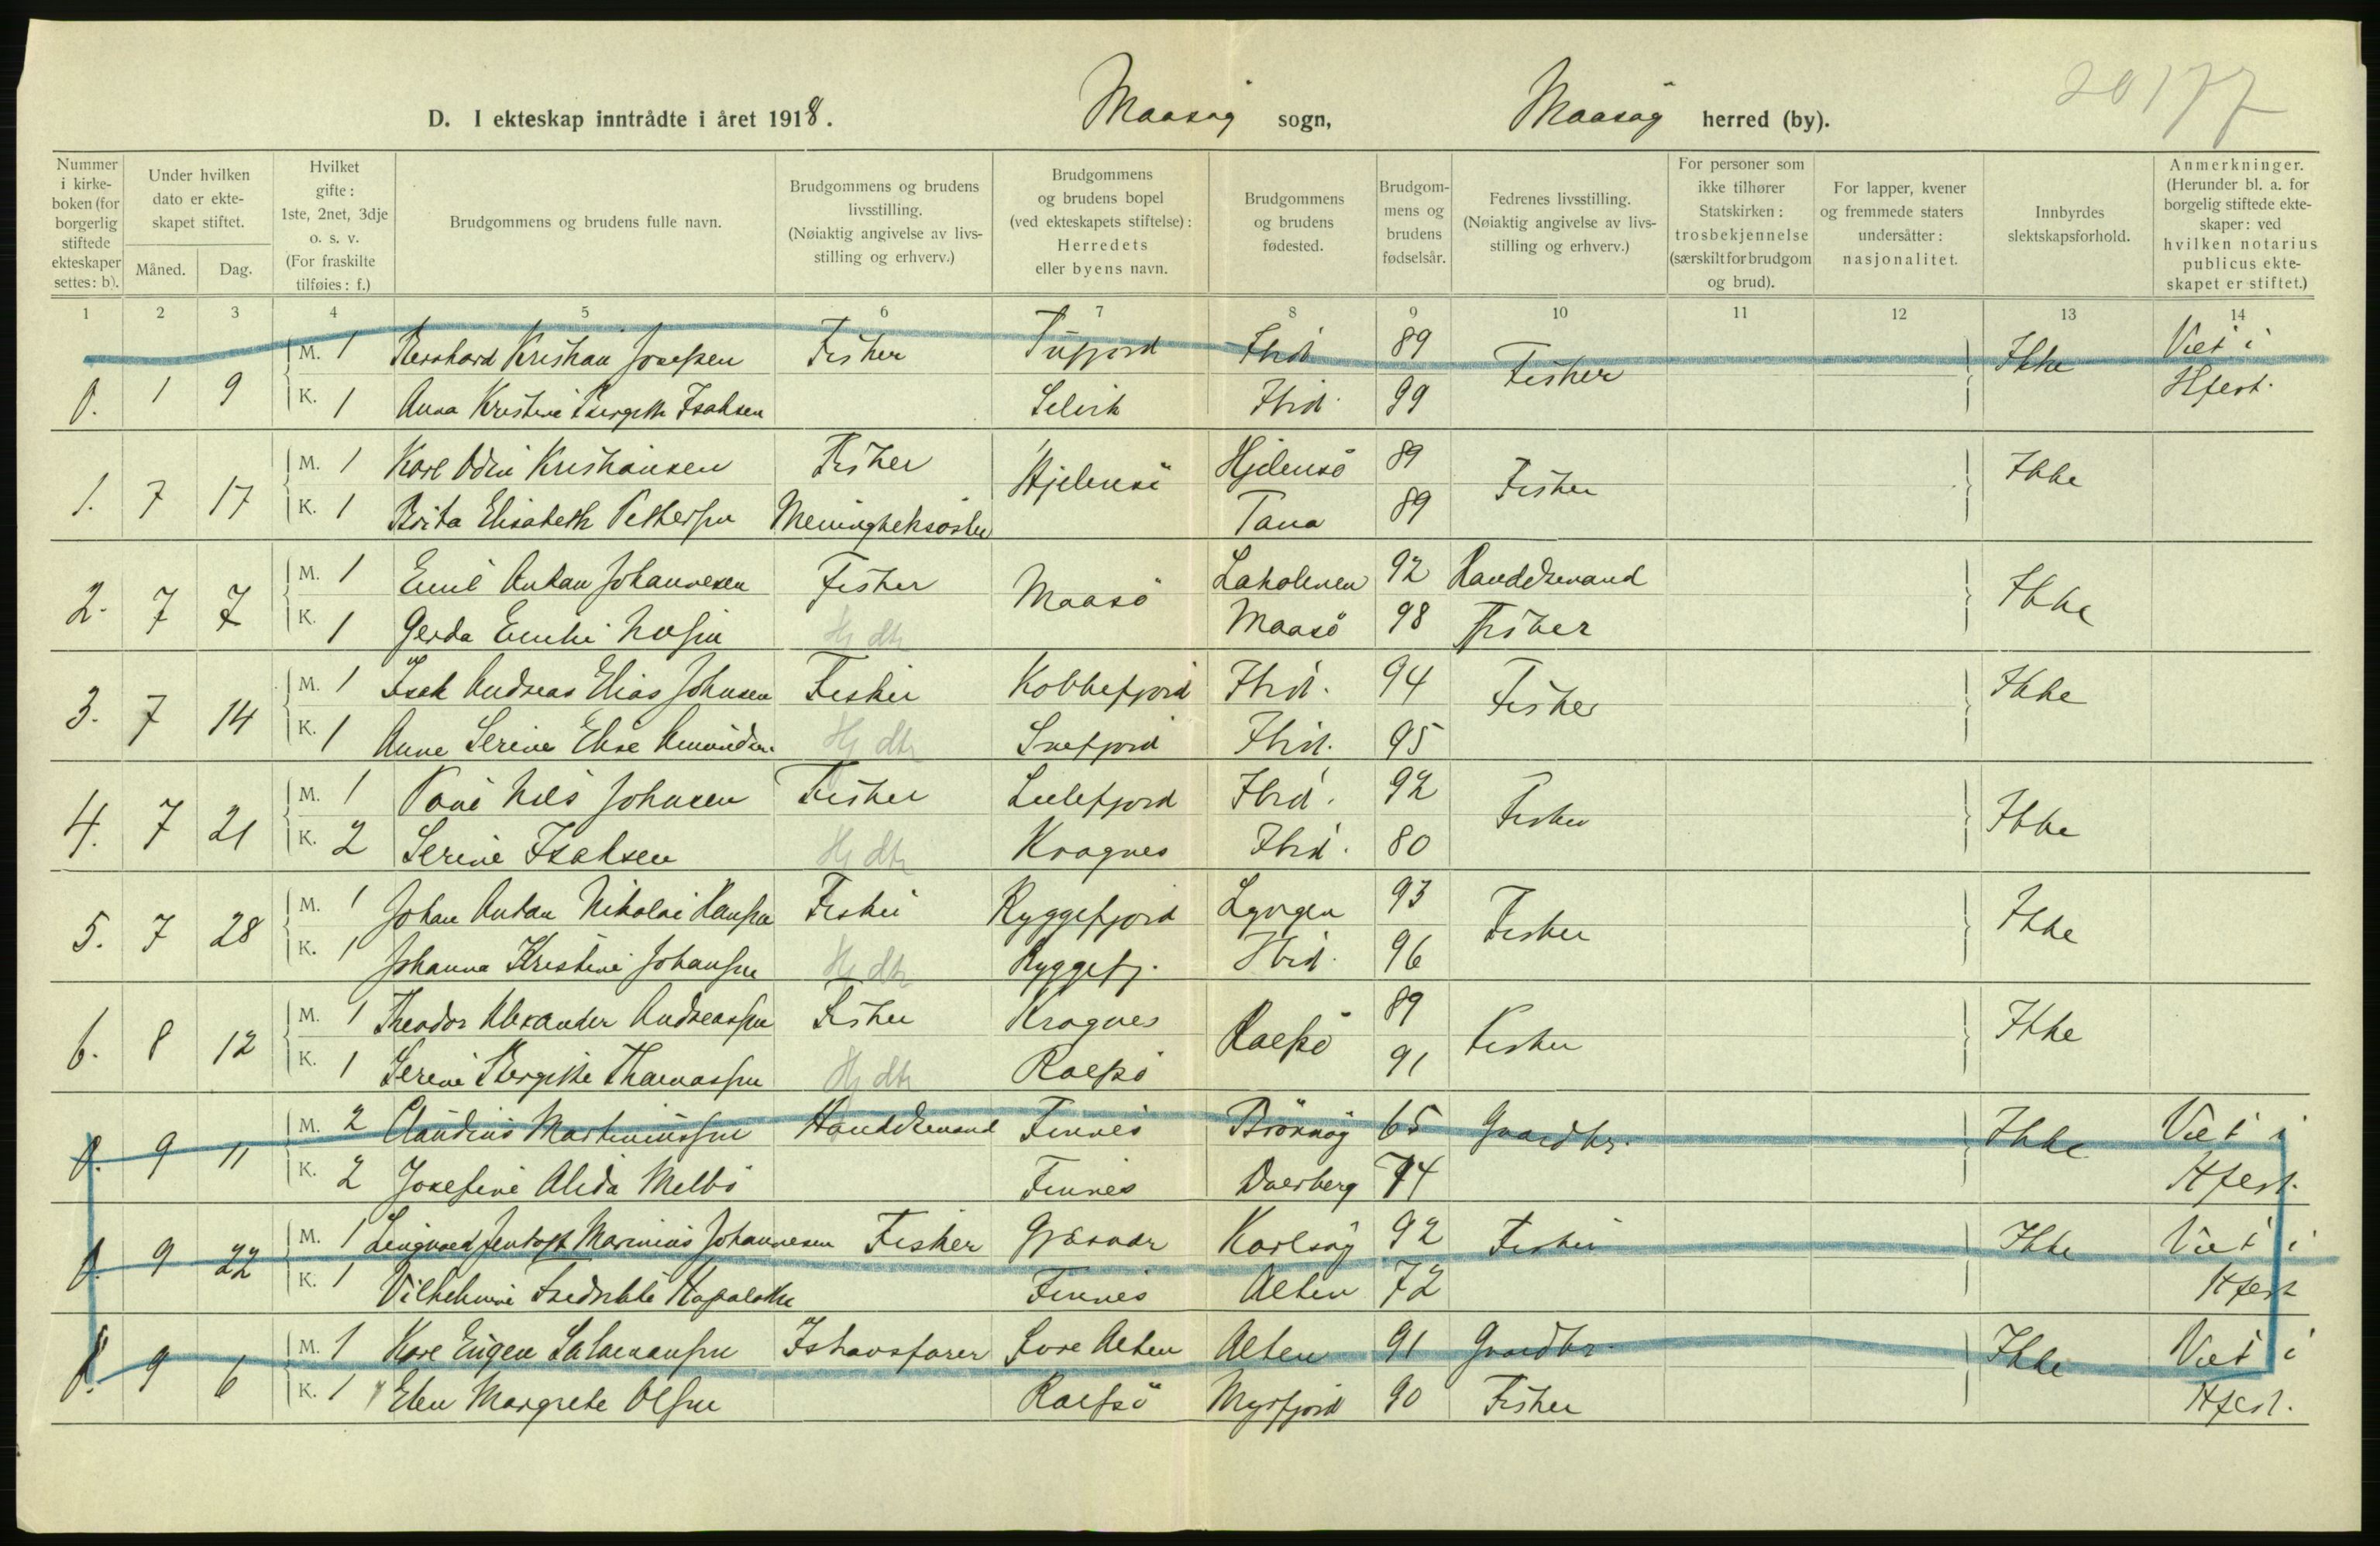 20177
D. I ekteskap inntrådte i året 1918. Maasøy sogn, Maasøy herred (by).
Nummer i kirke-boken (for borgerlig stiftede ekteskaper settes: b).
Under hvilken dato er ekte-skapet stiftet.
Måned. Dag.
Hvilket gifte: 1ste, 2net, 3dje o. s. v. (For fraskilte tilføies: f.)
Brudgommens og brudens fulle navn.
Brudgommens og brudens livsstilling. (Nøiaktig angivelse av livs-stilling og erhverv.)
Brudgommens og brudens bopel (ved ekteskapets stiftelse): Herredets eller byens navn.
Brudgommens og brudens fødested.
Brudgom-mens og brudens fødselsår.
Fedrenes livsstilling. (Nøiaktig angivelse av livs-stilling og erhverv.)
For personer som ikke tilhører Statskirken: trosbekjennelse (særskilt for brudgom og brud).
For lapper, kvener og fremmede staters undersåtter: nasjonalitet.
Innbyrdes slektskapsforhold.
Anmerkninger. (Herunder bl. a. for borgelig stiftede ekte-skaper: ved hvilken notarius publicus ekte-skapet er stiftet.)
1 2 3 4 5 6 7 8 9 10 11 12 13 14
0. 1 9 M. 1 Bernhard Kristian Josefsen Fisker Tufjord Ibid. 89 Fisker Ikke Viet i
K. 1 Anna Kristine Bergitte Isaksen Selvik Ibid. 99 Hfest.
1. 7 17 M. 1 Karl Odin Kristiansen Fisker Hjelmsö Hjelmsö 89 Fisker Ikke
K. 1 Brita Elisabeth Pettersen Menighetssøster Tana 89
2. 7 7 M. 1 Emil Antan Johannesen Fisker Maasö Lakolmen 92 Handelsmand Ikke
K. 1 Gerda Emilie Nilsen Hj dtr Maasö 98 Fisker
3. 7 14 M. 1 Isak Andreas Elias Johnsen Fisker Kobbefjord Ibid. 94 Fisker Ikke
K. 1 Anne Serine Elise Amundsen Hj dtr Snefjord Ibid. 95
4. 7 21 M. 1 Nils Johnsen Fisker Lillefjord Ibid. 92 Fisker Ikke
K. 2 Serine Isaksen Hj dtr Kragnes Ibid. 80
5. 7 28 M. 1 Johan Antan Nikolai Hansen Fisker Ryggefjord Lyngen 93 Fisker Ikke
K. 1 Johanna Kristine Johansen Hj dtr Ryggefj. Ibid. 96
6. 8 12 M. 1 Theodor Alexander Andreassen Fisker Kragnes Rolfsö 89 Fisker Ikke
K. 1 Serine Bergitte Thomassen Hj dtr Rolfsö 91
0. 9 11 M. 2 Claudius Martinussen Handelsmand Finnes Brönnöy 65 Gaardbr. Ikke Viet i
K. 2 Josefine Alida Melbö Finnes Dverberg 74 Hfest.
0. 9 22 M. 1 Marinius Johannesen Fisker Karlsöy 92 Fisker Ikke Viet i
K. 1 Vilhelmine Fredrikke Finnes Alten 72 Hfest
0. 9 6 M. 1 Kare Eugen Salamonsen Ishavsfarer Alten Alten 91 Gaardbr. Ikke Viet i
K. 1 Elen Margrete Olsen Rolfsö Myrfjord 90 Fisker Hfest.